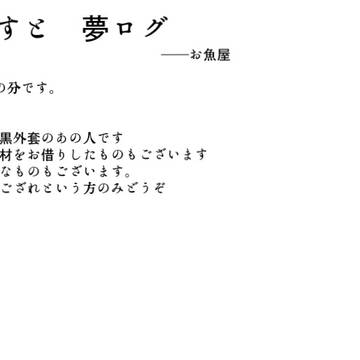 すと　夢ログ
――お魚屋
の分です。
黒外套のあの人です
材をお借りしたものもございます
なものもございます。
ござれという方のみどうぞ